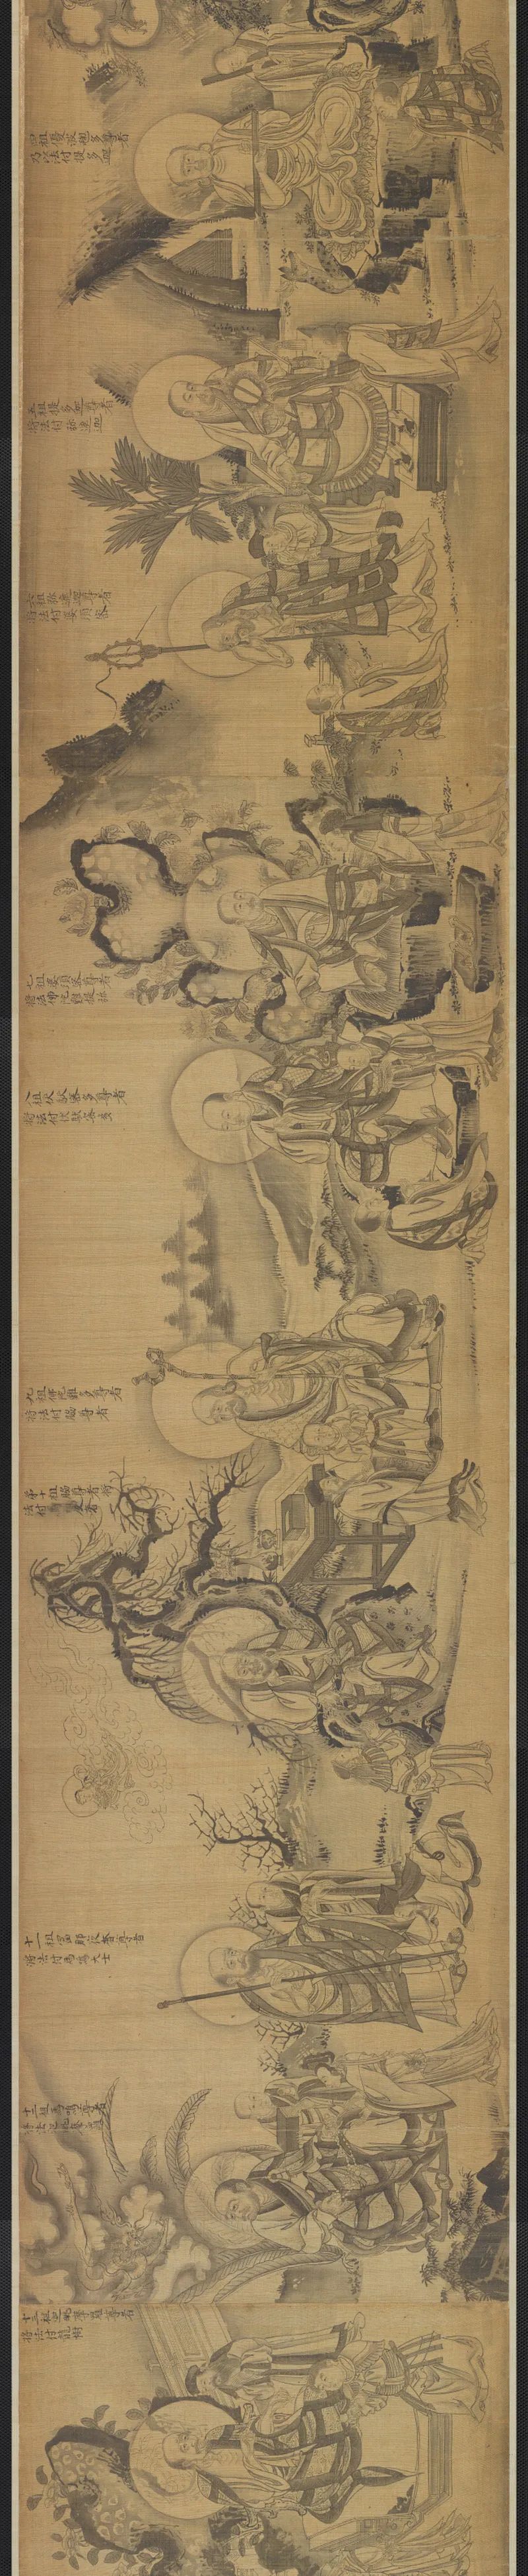 四祖優波毱多尊者
乃以法付提多迦
五祖提多迦尊者
將法付弥遮迦
六祖弥遮迦尊者
將法付婆須蜜
七祖婆須蜜尊者
將法付佛陀難提
八祖 多尊者
將法付伏馱蜜多
九祖 多尊者
將法付脇尊者
第十祖脇尊者將
法付 者
十一祖富那夜奢尊者
將法付馬鳴大士
十二祖馬鳴尊者
將法付迦毗摩羅
十三祖迦毗摩羅尊者
將法付龍樹